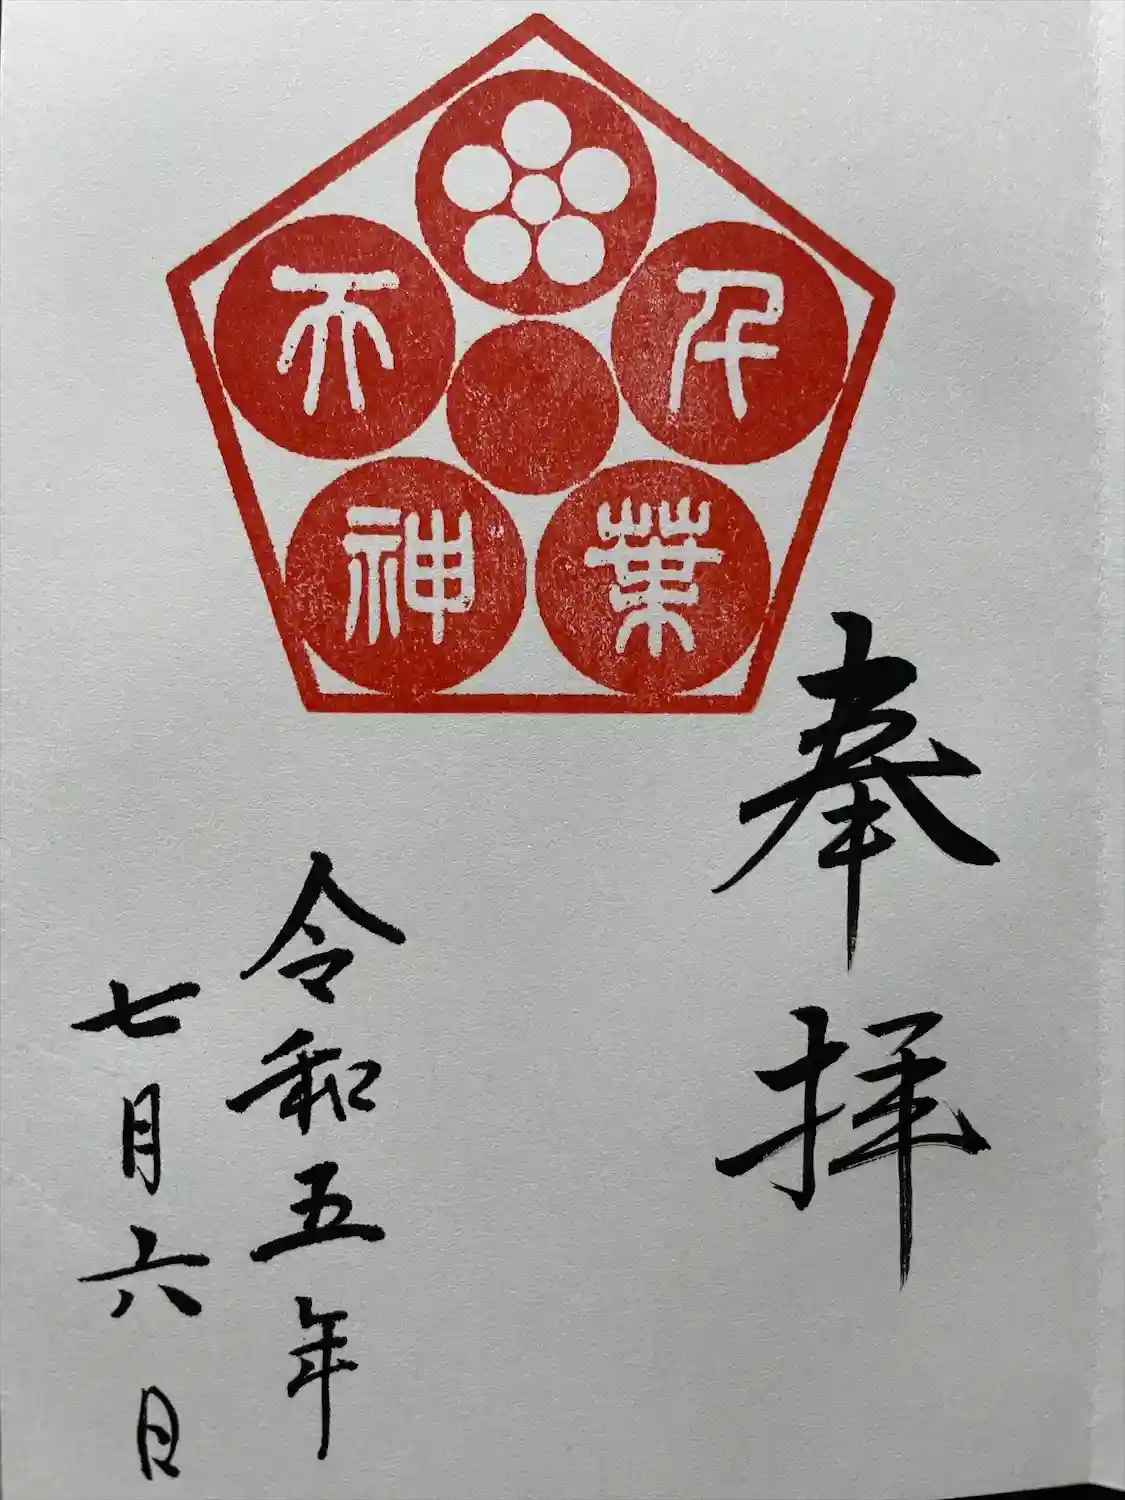 千葉
天神
奉拝
令和五年
七月六日